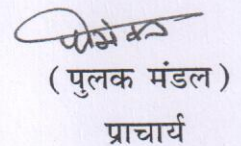 ( पुलक मंडल )
प्राचार्य